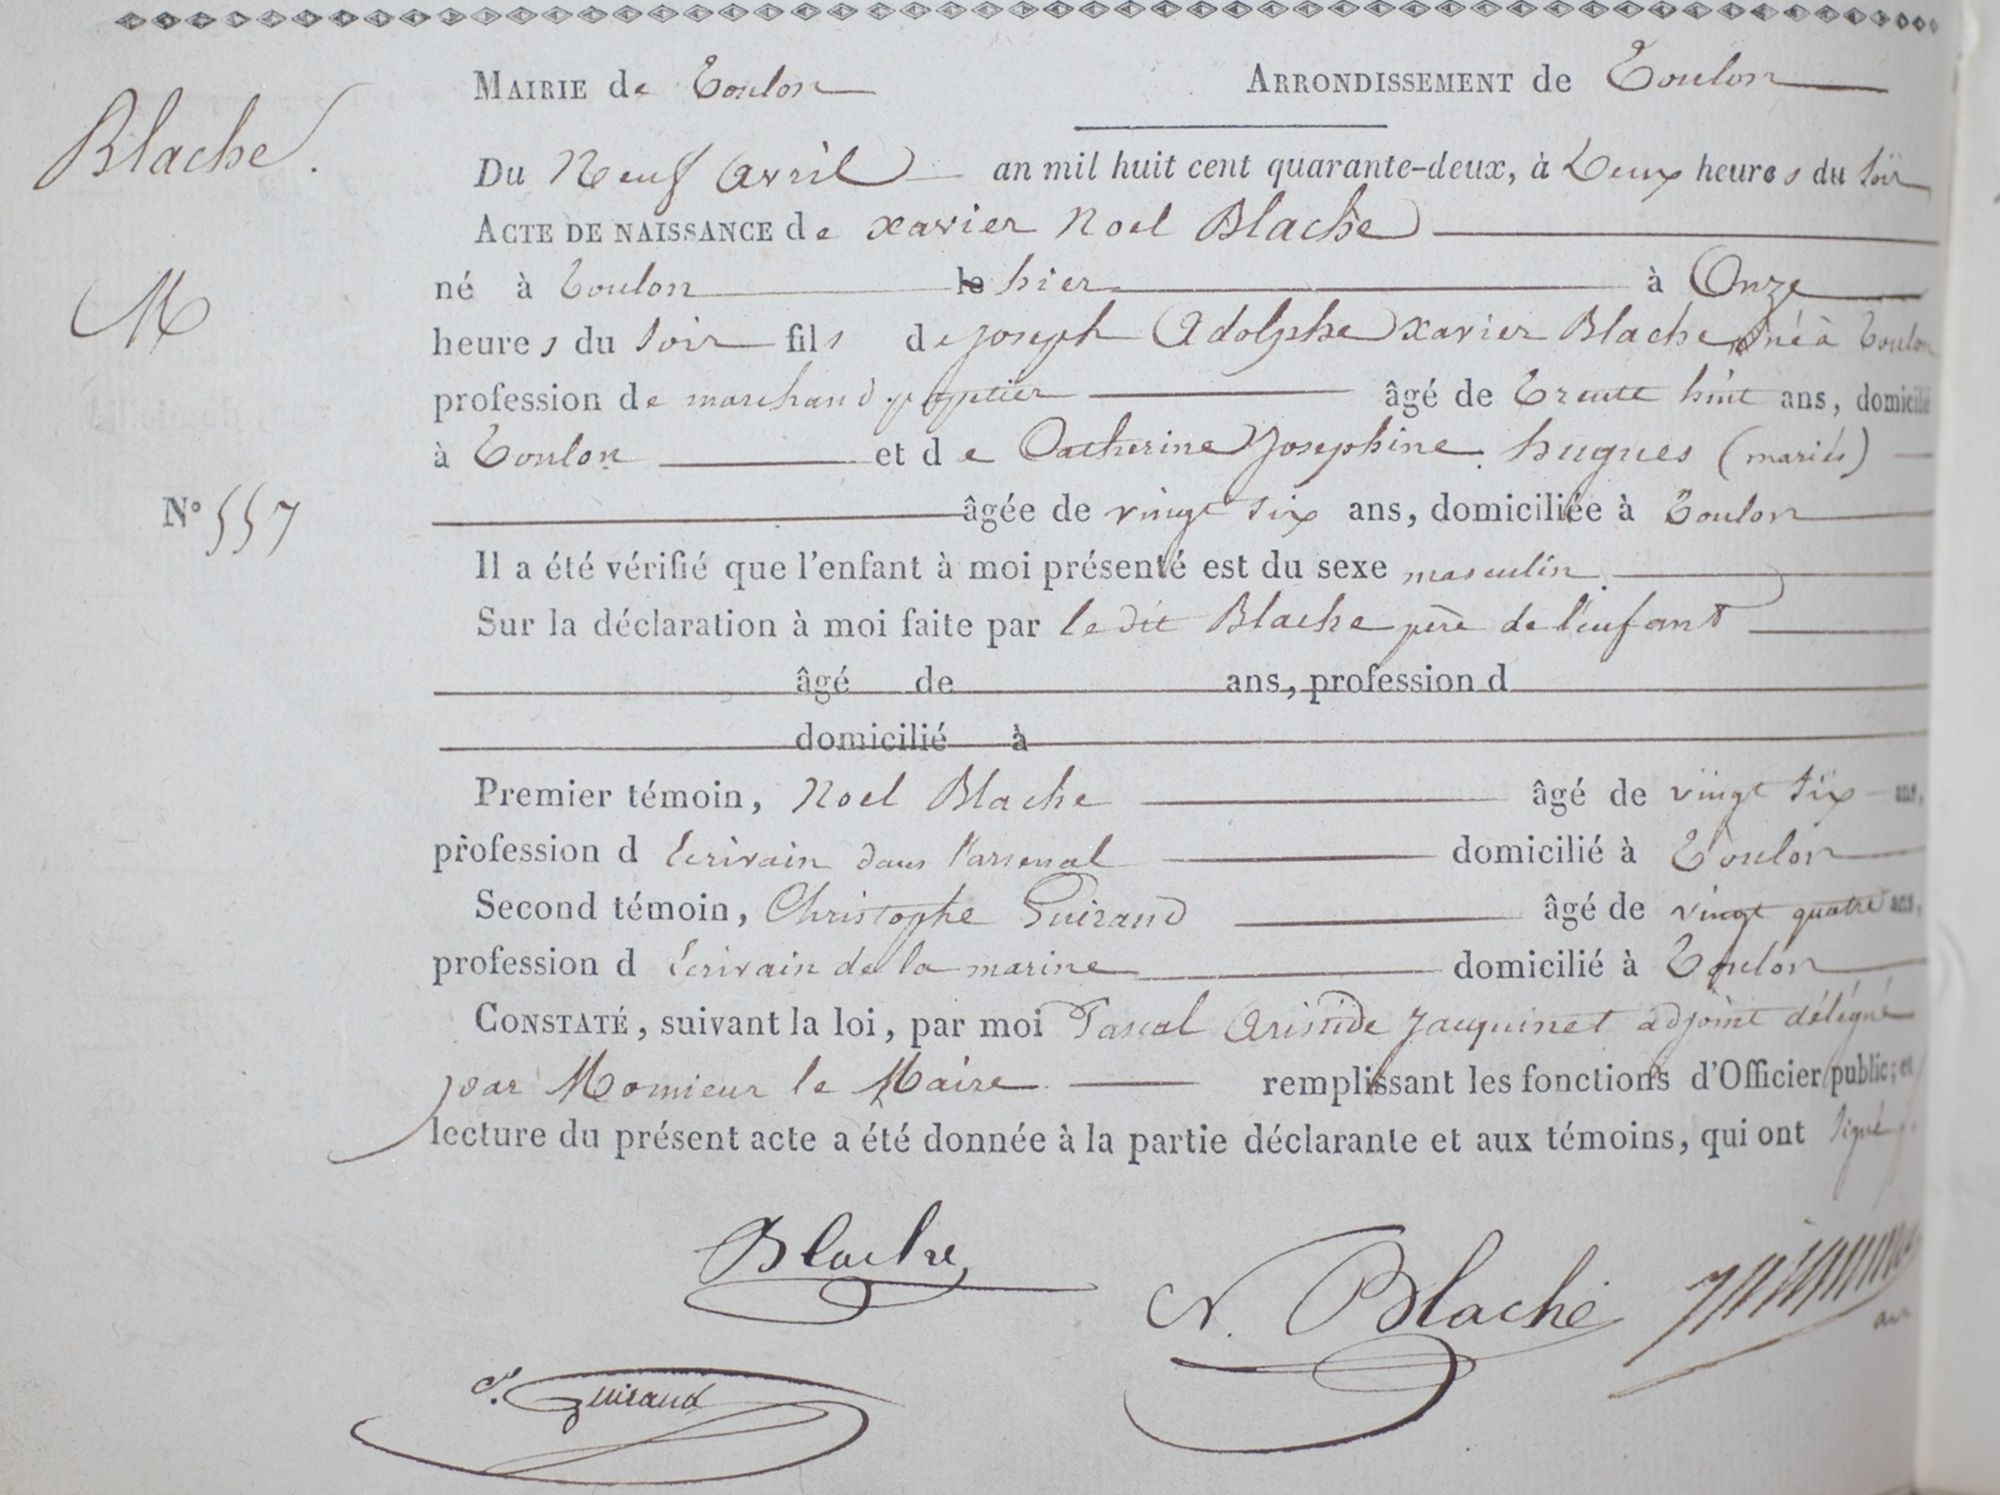 Mairie de Toulon Arrondissement de Toulon
Blache.
Du Neuf avril an mil huit cent quarante-deux, à Deux heures du soir
Acte de naissance de xavier Noel Blache
M
né à Toulon le hier à Onze
heures du soir fils de joseph Adolphe xavier Blache né à Toulon
profession de marchand papetier âgé de Trente huit ans, domicilié
à Toulon et de Catherine Josephine hugues (mariés)
N° 557
âgée de vingt six ans, domiciliée à Toulon
Il a été vérifié que l'enfant à moi présenté est du sexe masculin
Sur la déclaration à moi faite par le dit Blache père de l'enfant
âgé de ans, profession d
domicilié à
Premier témoin, Noel Blache âgé de vingt six ans,
profession d Ecrivain dans l'arsenal domicilié à Toulon
Second témoin, Christophe Guiraud âgé de vingt quatre ans,
profession d Ecrivain de la marine domicilié à Toulon
Constaté, suivant la loi, par moi Pascal Aristide Jauquinet adjoint délégué
par Monsieur le Maire remplissant les fonctions d'Officier public; et
lecture du présent acte a été donnée à la partie déclarante et aux témoins, qui ont signé
Blache
N. Blache
C. Guiraud